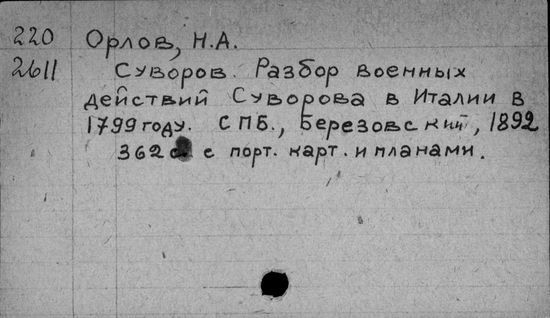 220 Орлов, Н.А.
2611 Суворов. Разбор военных
действий Суворова в Италии в
1799 году. СПБ., Березовский, 1892
362 с. с порт. карт. и планами.